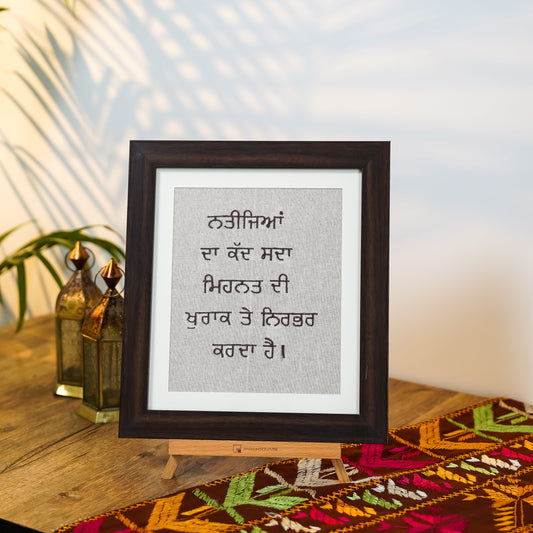 ਨਤੀਜਿਆਂ
ਦਾ ਕੱਦ ਸਦਾ
ਮਿਹਨਤ ਦੀ
ਖੁਰਾਕ ਤੇ ਨਿਰਭਰ
ਕਰਦਾ ਹੈ।